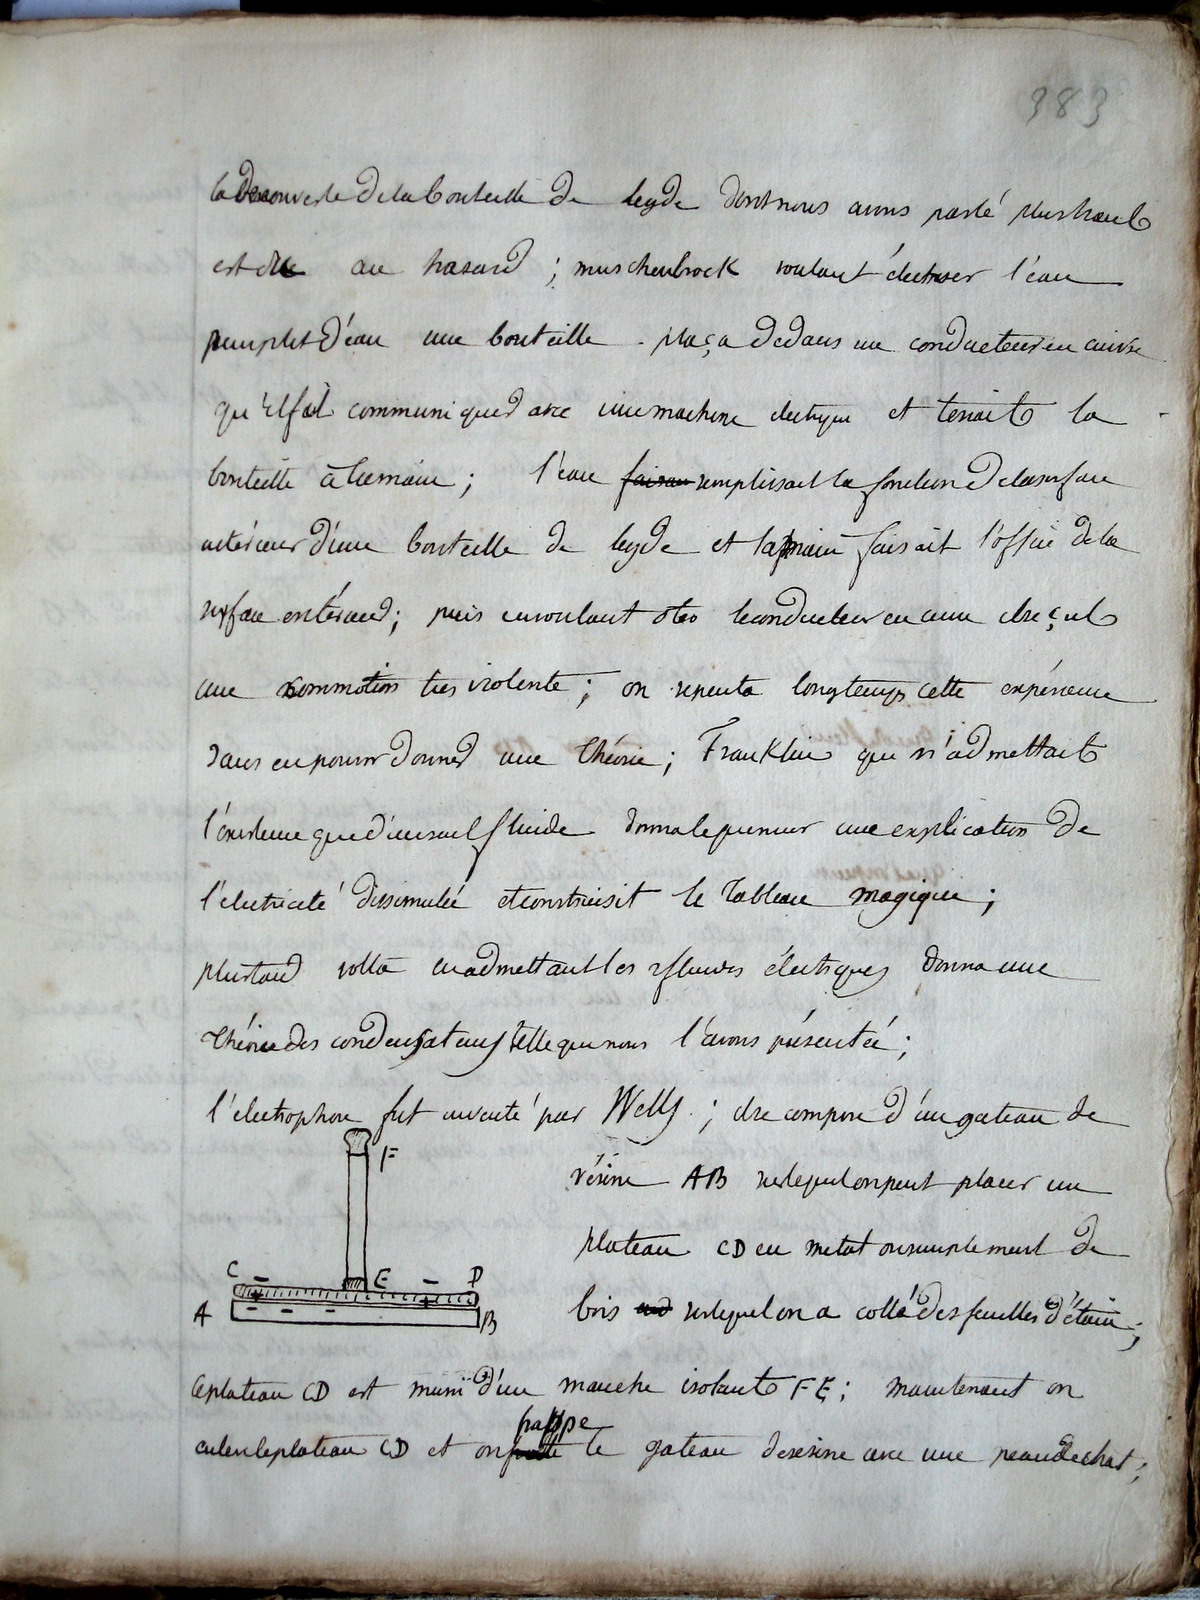 383
la découverte de la bouteille de leyde dont nous avons parlé plus haut
est due au hasard ; muschenbrock voulant électriser l'eau
remplit d'eau une bouteille plaça dedans un conducteur en cuivre
qu'il fait communiquer avec une machine electrique et tenait la
bouteille à la main ; l'eau faisan remplissait la fonction de la surface
intérieur d'une bouteille de leyde et la main faisait l'office de la
surface extérieur ; puis en voulant oter le conducteur en cuivre il reçut
une commotion tres violente ; on repeta longtemps cette expérience
sans en pouvoir donner une théorie ; Franklin qui n'admettait
l'existence que d'un seul fluide donna le premier une explication de
l'électricité dissimulée et construisit le tableau magique ;
plus tard volta en admettant les 2 fluides électriques donna une
théorie des condensateurs telle que nous l'avons présentée ;
l'electrophore fut inventé par ; il se compose d'un gateau de
F
résine AB sur lequel on peut placer un
plateau CD en metal ou simplement de
C E D
A B
bois sur lequel on a collé des feuilles d'étain ;
le plateau CD est muni d'un manche isolant FE ; maintenant on
frappe
enleve le plateau CD et on le gateau de résine avec une peau de chat ;